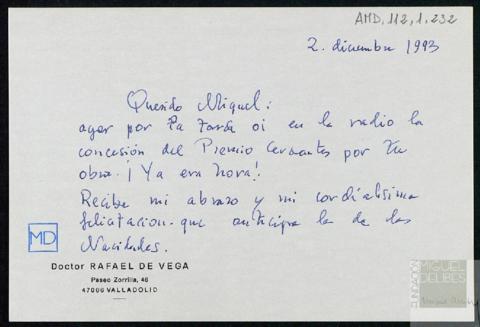 AMD, 112, 1, 232
2. diciembre 1993
Querido Miguel:
ayer por la tarde oí en la radio la
concesión del Premio Cervantes por tu
obra. ¡Ya era hora!
Recibe mi abrazo y mi cordialísima
felicitación que anticipa la de las
Navidades.
MD
Doctor RAFAEL DE VEGA
Paseo Zorrilla, 46
47006 VALLADOLID
FUNDACIÓN
MIGUEL
DELIBES